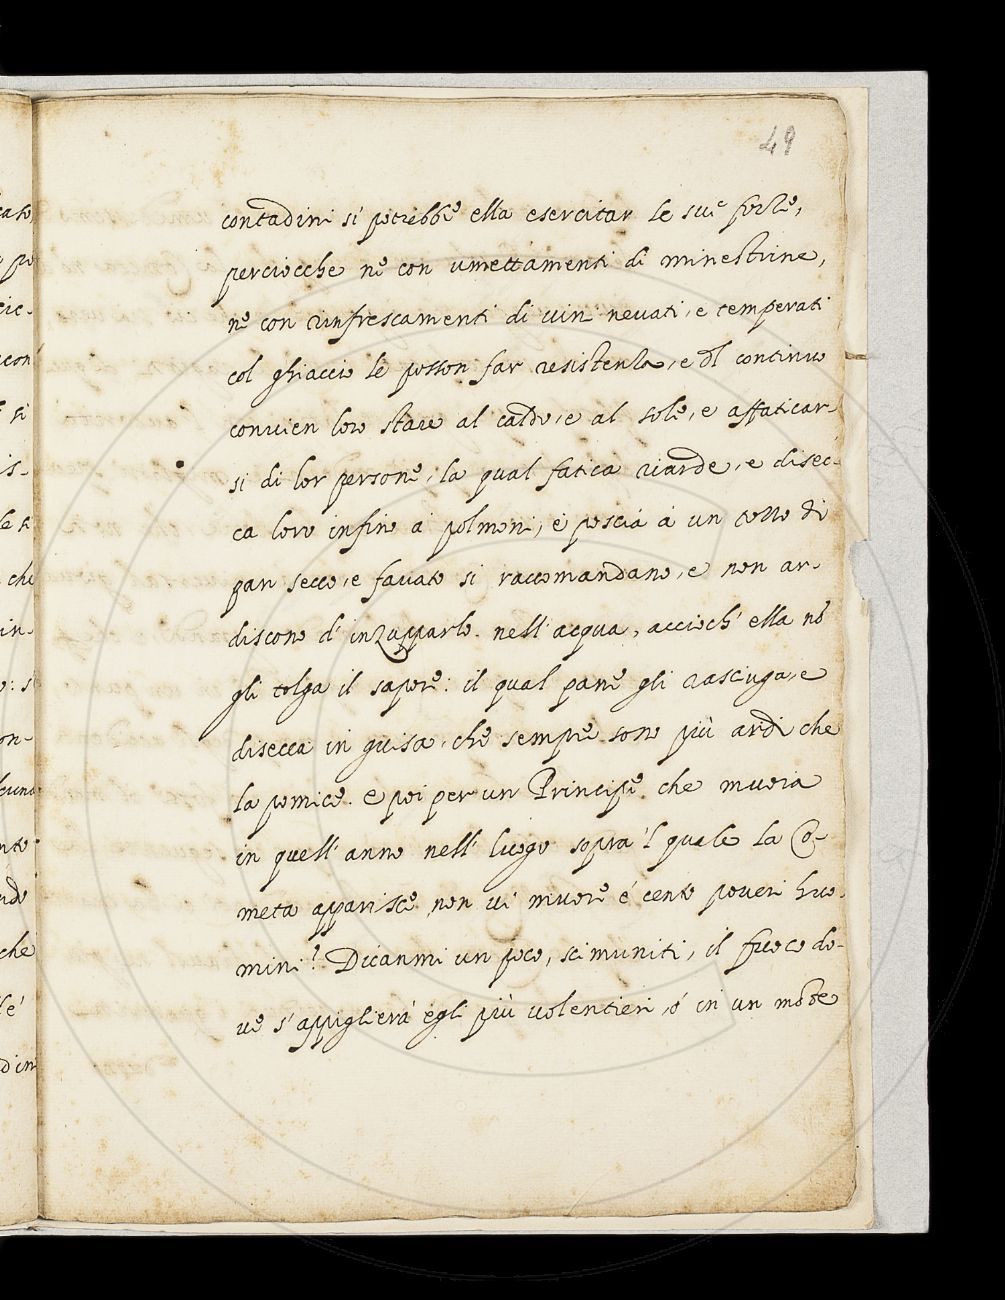 49
contadini si potrebbe ella esercitar le sue forze,
perciocche ne con umettamenti di minestrine,
ne con rinfrescamenti di vin nevati, e temperati
col ghiaccio le posson far resistenza, e 'l continuo
convien loro stare al caldo, e al sole, e affaticar-
si di lor persone, la qual fatica riarde, e disec-
ca loro infino a' polmoni, e poscia a un tozzo di
pan secco, e favato si raccomandano, e non ar-
discono d'inzupparlo nell'acqua, accioch' ella nō
gli tolga il sapore: il qual pane gli rasciuga, e
disecca in guisa, che sempre sono più aridi che
la pomice. e poi per un Principe che muoia
in quell'anno nell' luogo sopra 'l quale la Co-
meta apparisce, non vi muore e' cento poveri huo-
mini? Dicanmi un poco, scimuniti, il fuoco do-
ve s'appiglierà egli più volentieri, ò in un
cato,
con
che
che